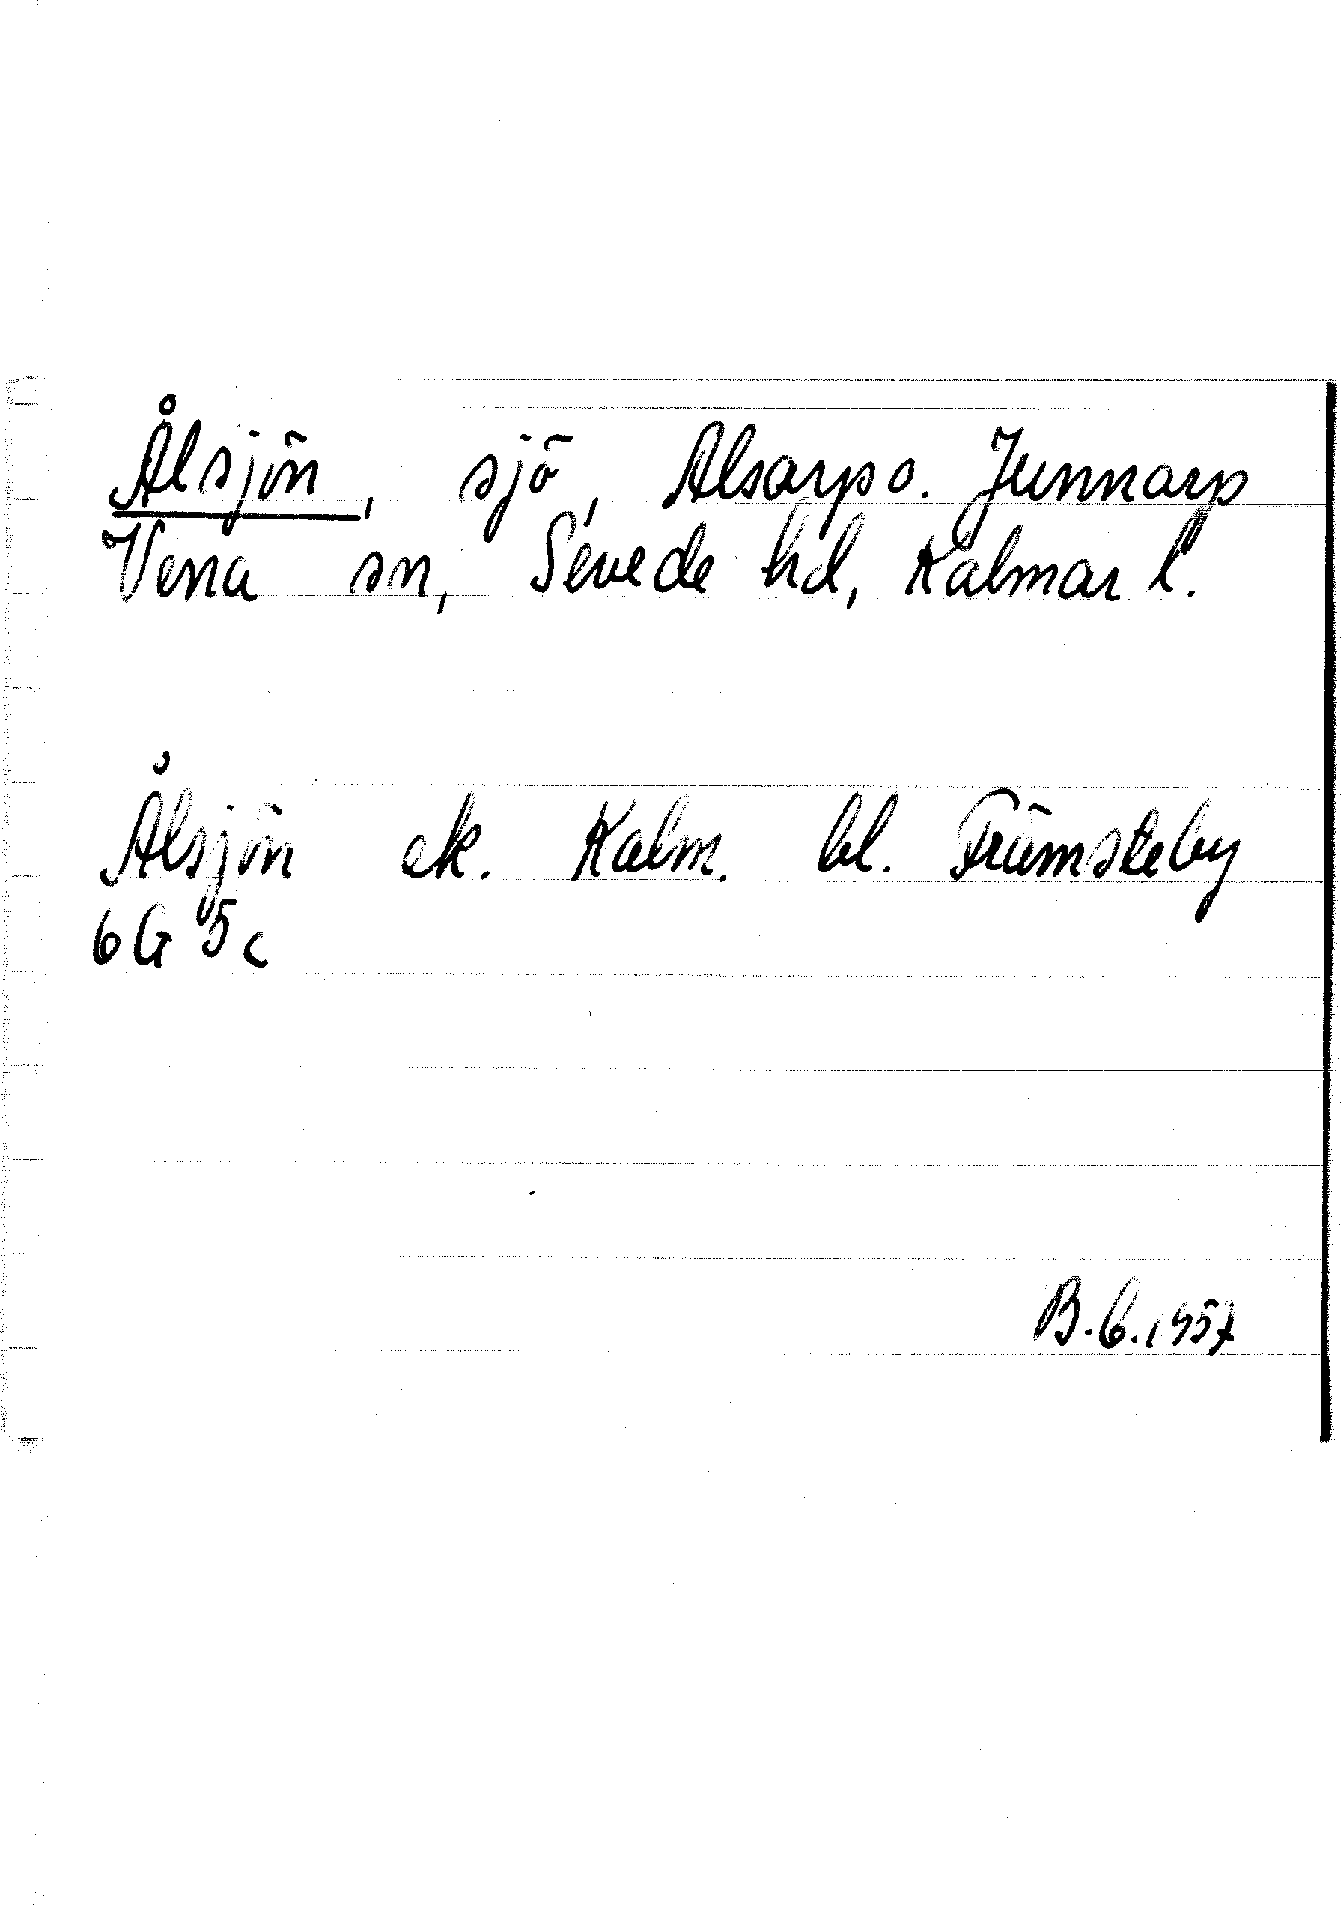 Ålsjön, sjö, Alsarp o. Junnarp
Vena sn, Sevede hd, Kalmar l.
Ålsjön ek. Kalm. bl. Främsteby
6G 5c
B.C. 1957